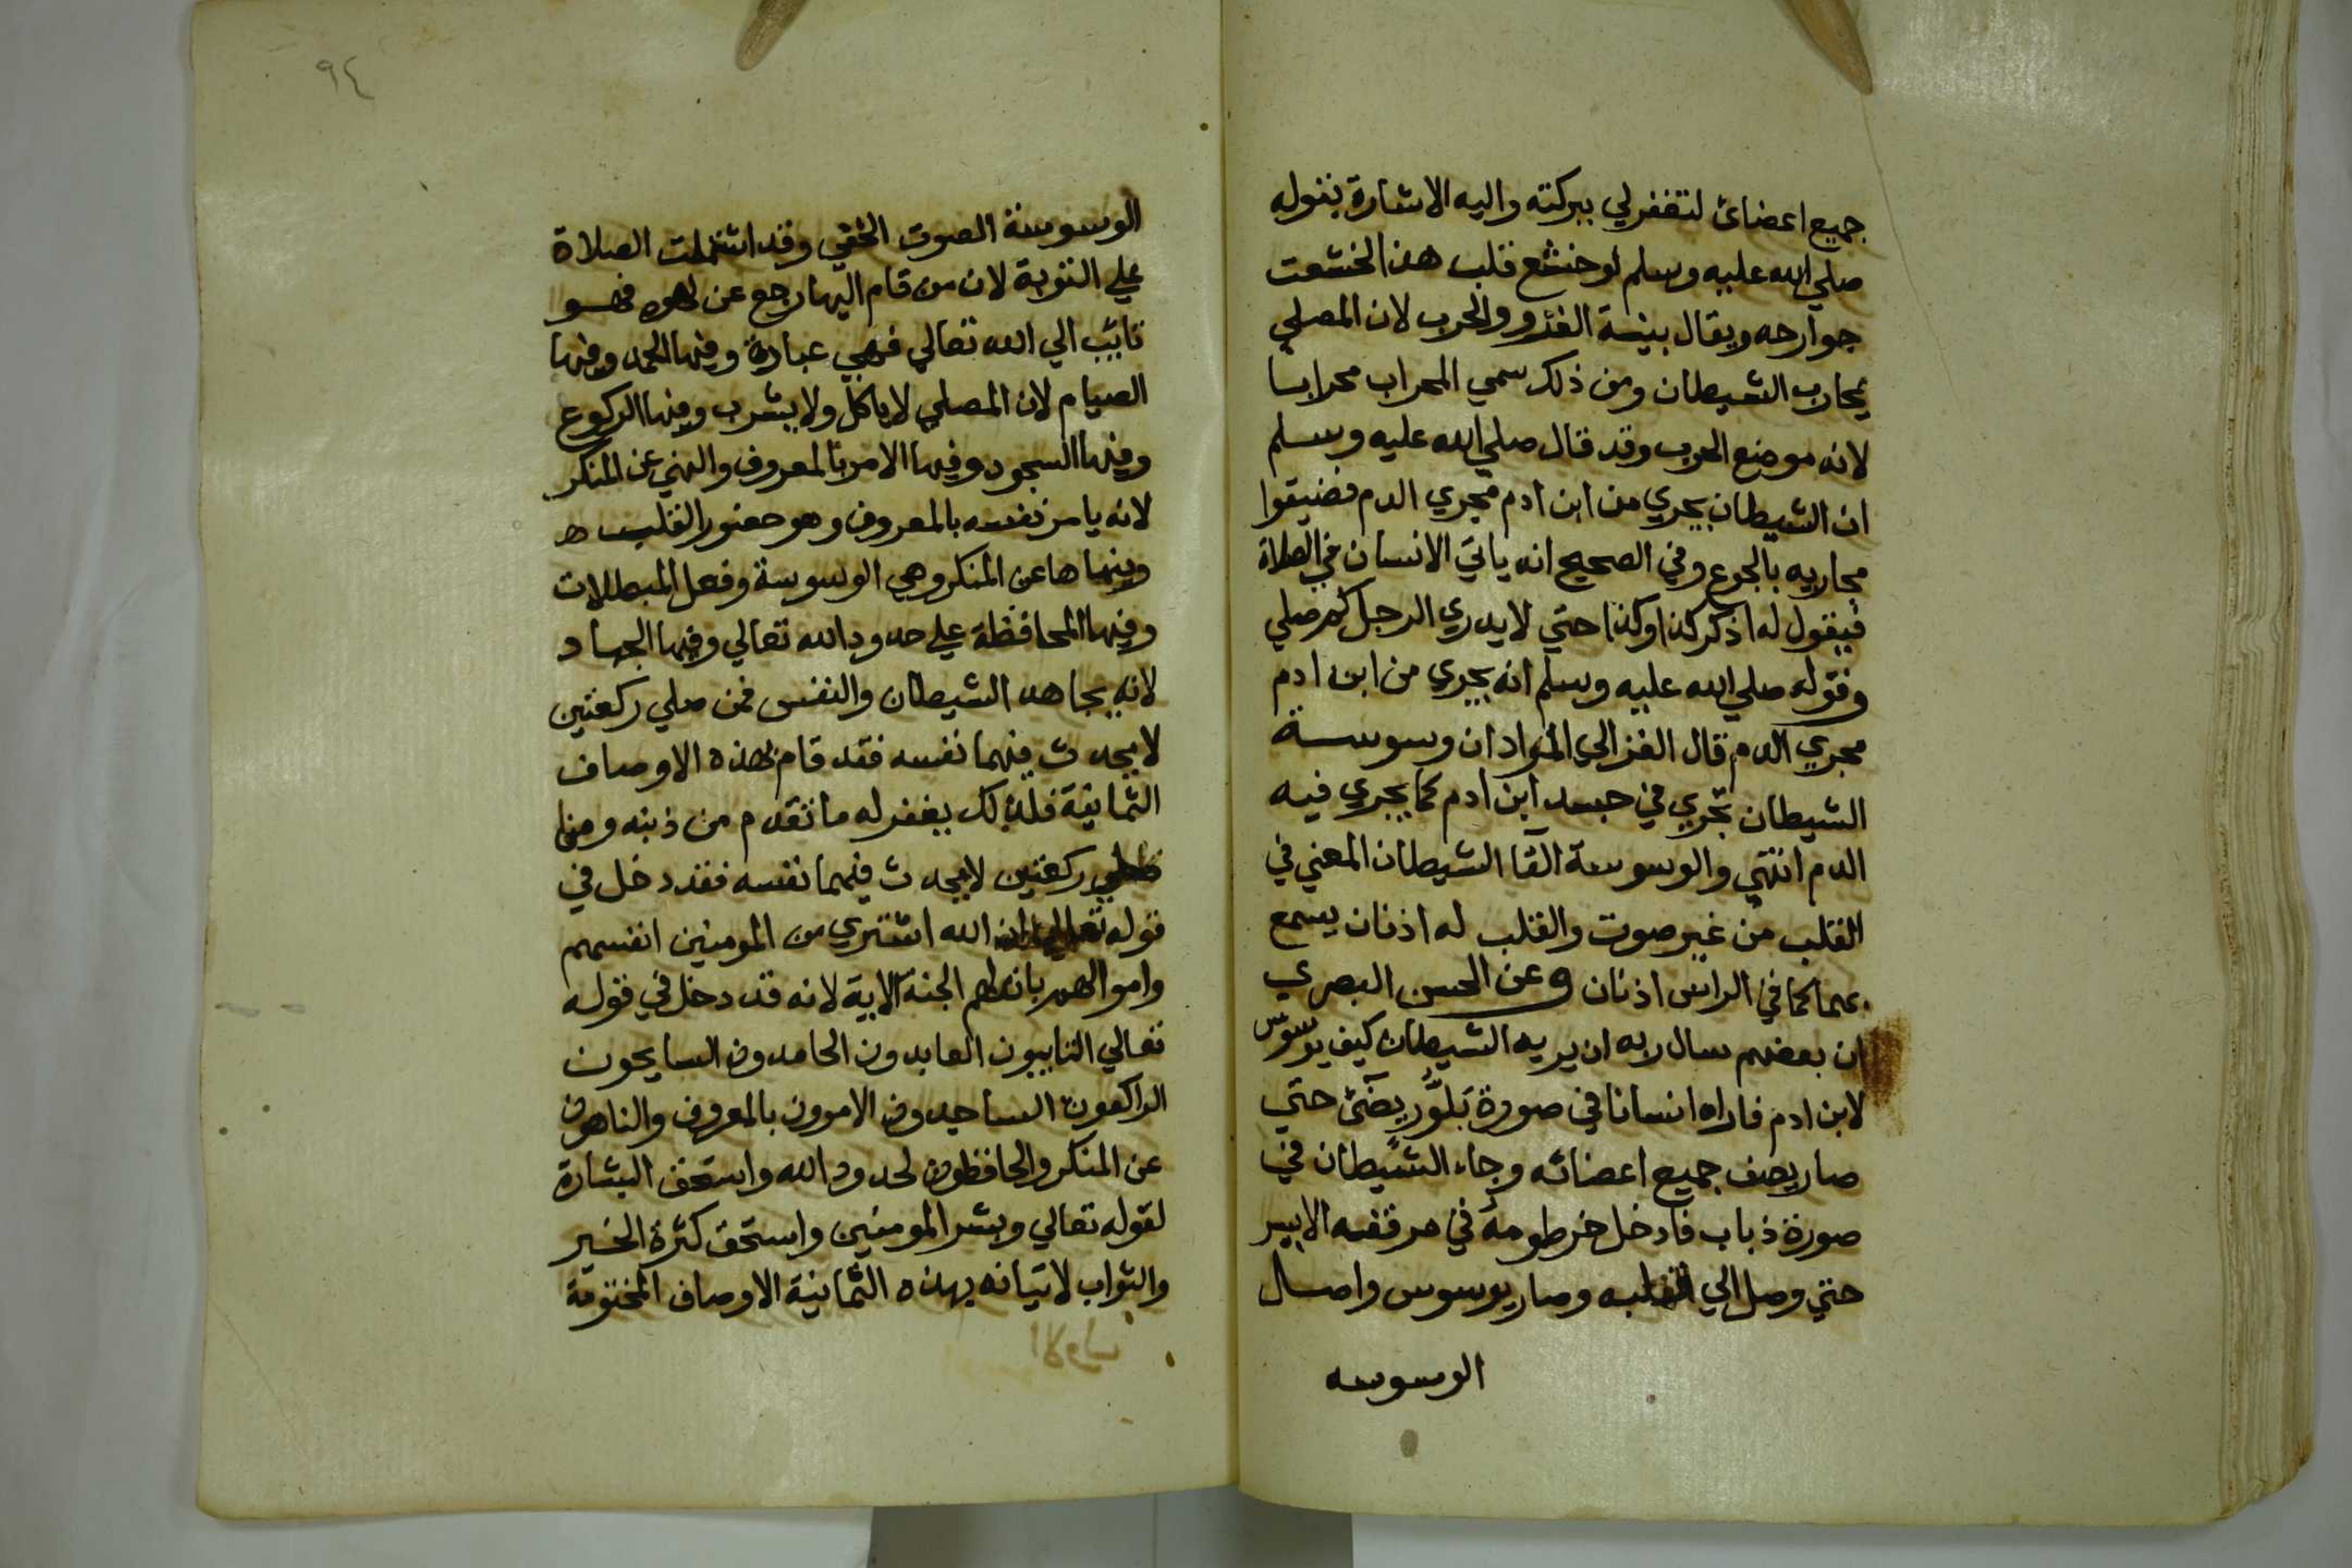 جميع اعضائ لتغفر لي ببركته واليه الاشارة بقوله
صلي الله عليه وسلم لو خشع قلب هذا لخشعت
جوارحه ويقال بنية الغزو والحرب لان المصلي
يحارب الشيطان ومن ذلك سمي المحراب محرابا
لانه موضع الحرب وقد قال صلي الله عليه وسلم
ان الشيطان يجري من ابن ادم مجري الدم فضيقوا
مجاريه بالجوع وفي الصحيح انه ياتي الانسان في الصلاة
فيقول له اذكر كذا وكذا حتي لا يدري الرجل كم صلي
وقوله صلي الله عليه وسلم انه يجري من ابن ادم
مجري الدم قال الغزالي المراد ان وسوسة
الشيطان تجري في جسد ابن ادم كما يجري فيه
الدم انتهي والوسوسة القا الشيطان المعني في
القلب من غير صوت والقلب له اذنان يسمع
بهما كما في الراس اذنان وعن الحسن البصري
ان بعضهم سال ربه ان يريه الشيطان كيف يوسوس
لابن ادم فاراه انسانا في صورة بَلَوَّر يضَئ حتي
صار يصف جميع اعضائه وجاء الشيطان في
صورة ذباب فادخل خرطومه في مرفقه الايسر
حتي وصل الي القلب وصار يوسوس واصل
الوسوسه
٩٤
الوسوسة الصوت الخفي وقد اشتملت الصلاة
علي التوبة لان من قام اليها رجع عن لهوه فهو
تائب الي الله تعالي فهي عبادة وفيها الحمد وفيها
الصيام لان المصلي لا ياكل ولا يشرب وفيها الركوع
وفيها السجود وفيها الامر بالمعروف والنهي عن المنكر
لانه يامر نفسه بالمعروف وهو حضور القلب
وينهاها عن المنكر وهي الوسوسة وفعل المبطلات
وفيها المحافظة علي حدود الله تعالي وفيها الجهاد
لانه يجاهد الشيطان والنفس فمن صلي ركعتين
لا يحدث فيهما نفسه فقد قام بهذه الاوصاف
الثمانية فلذلك يغفر له ما تقدم من ذنبه ومن
صلي ركعتين لا يحدث فيهما نفسه فقد دخل في
قوله تعالي ان الله اشتري من المومنين انفسهم
واموالهم بان لهم الجنة الاية لانه قد دخل في قوله
تعالي التايبون العابدون الحامدون السايحون
الراكعون الساجدون الامرون بالمعروف والناهون
عن المنكر والحافظون لحدود الله واستحق البشارة
لقوله تعالي وبشر المومنين واستحق كثرة الخير
والثواب لاتيانه بهذه الثمانية الاوصاف المختومة